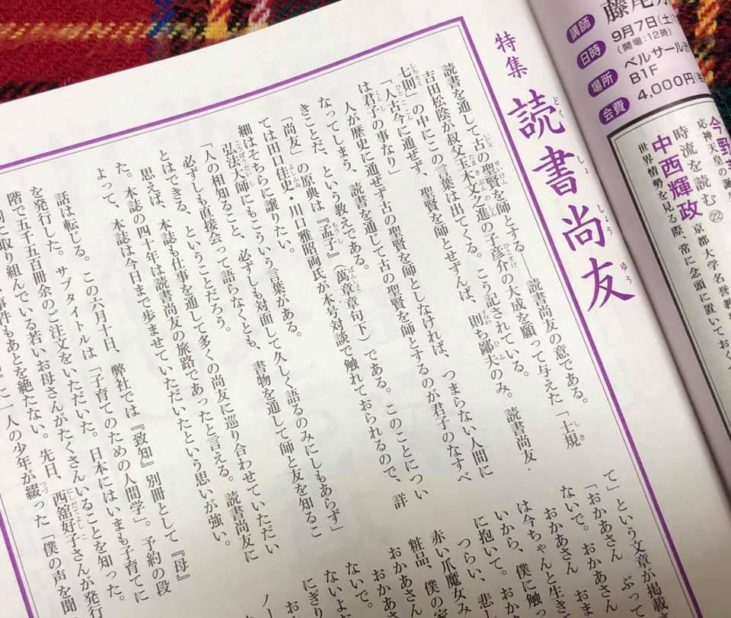 特集
読書尚友
どく しょ しょう ゆう
読書を通して古の聖賢を師とする――読書尚友の意である。
吉田松陰が叔父玉木文之進の子彦介の大成を願って与えた「士規
七則」の中にこの言葉は出てくる。こう記されている。
「人古今に通ぜず、聖賢を師とせずんば、則ち鄙夫のみ。読書尚友
は君子の事なり」
人が歴史に通せず古の聖賢を師としなければ、つまらない人間に
なってしまう、読書を通して古の聖賢を師とするのが君子のなすべ
きことだ、という教えである。
「尚友」の原典は『孟子』（萬章章句下）である。このことについ
ては田口佳史・川口雅昭両氏が本号対談で触れておられるので、詳
細はそちらに譲りたい。
弘法大師にもこういう言葉がある。
「人の相知ること、必ずしも対面して久しく語るのみにしもあらず」
必ずしも直接会って語らなくとも、書物を通して師と友を知るこ
とはできる、ということだろう。
思えば、本誌も仕事を通して多くの尚友に巡り合わせていただい
た。本誌の四十年は読書尚友の旅路であったと言える。読書尚友に
よって、本誌は今日まで歩ませていただいたという思いが強い。
話は転じる。この六月十日、弊社では『致知』別冊として『母』
を発行した。サブタイトルは「子育てのための人間学」。予約の段
階で五千五百冊余のご注文をいただいた。日本にはいまも子育てに
に取り組んでいる若いお母さんがたくさんいることを知った。
事件もあとを絶たない。先日、西舘好子さんが発行
一人の少年が綴った「僕の声を聞
て」という文章が掲載さ
「おかあさん　ぶって
ないで。おかあさん
おかあさん　おま
は今ちゃんと生きて
いから、僕に触っ
に抱いて。おか
つらい、悲し
赤い爪魔女み
粧品、僕の家
おかあさん
ないで。
おかあ
ないよ
にぎり
お
ノー
講師
日時
9月7日(土)
(開場:12時)
場所
ベルサール
B1F
会費
4,000円
応神天皇の
時流を読む 22
中西輝政
京都大学名誉教
世界情勢を見る際、常に念頭に置いておく